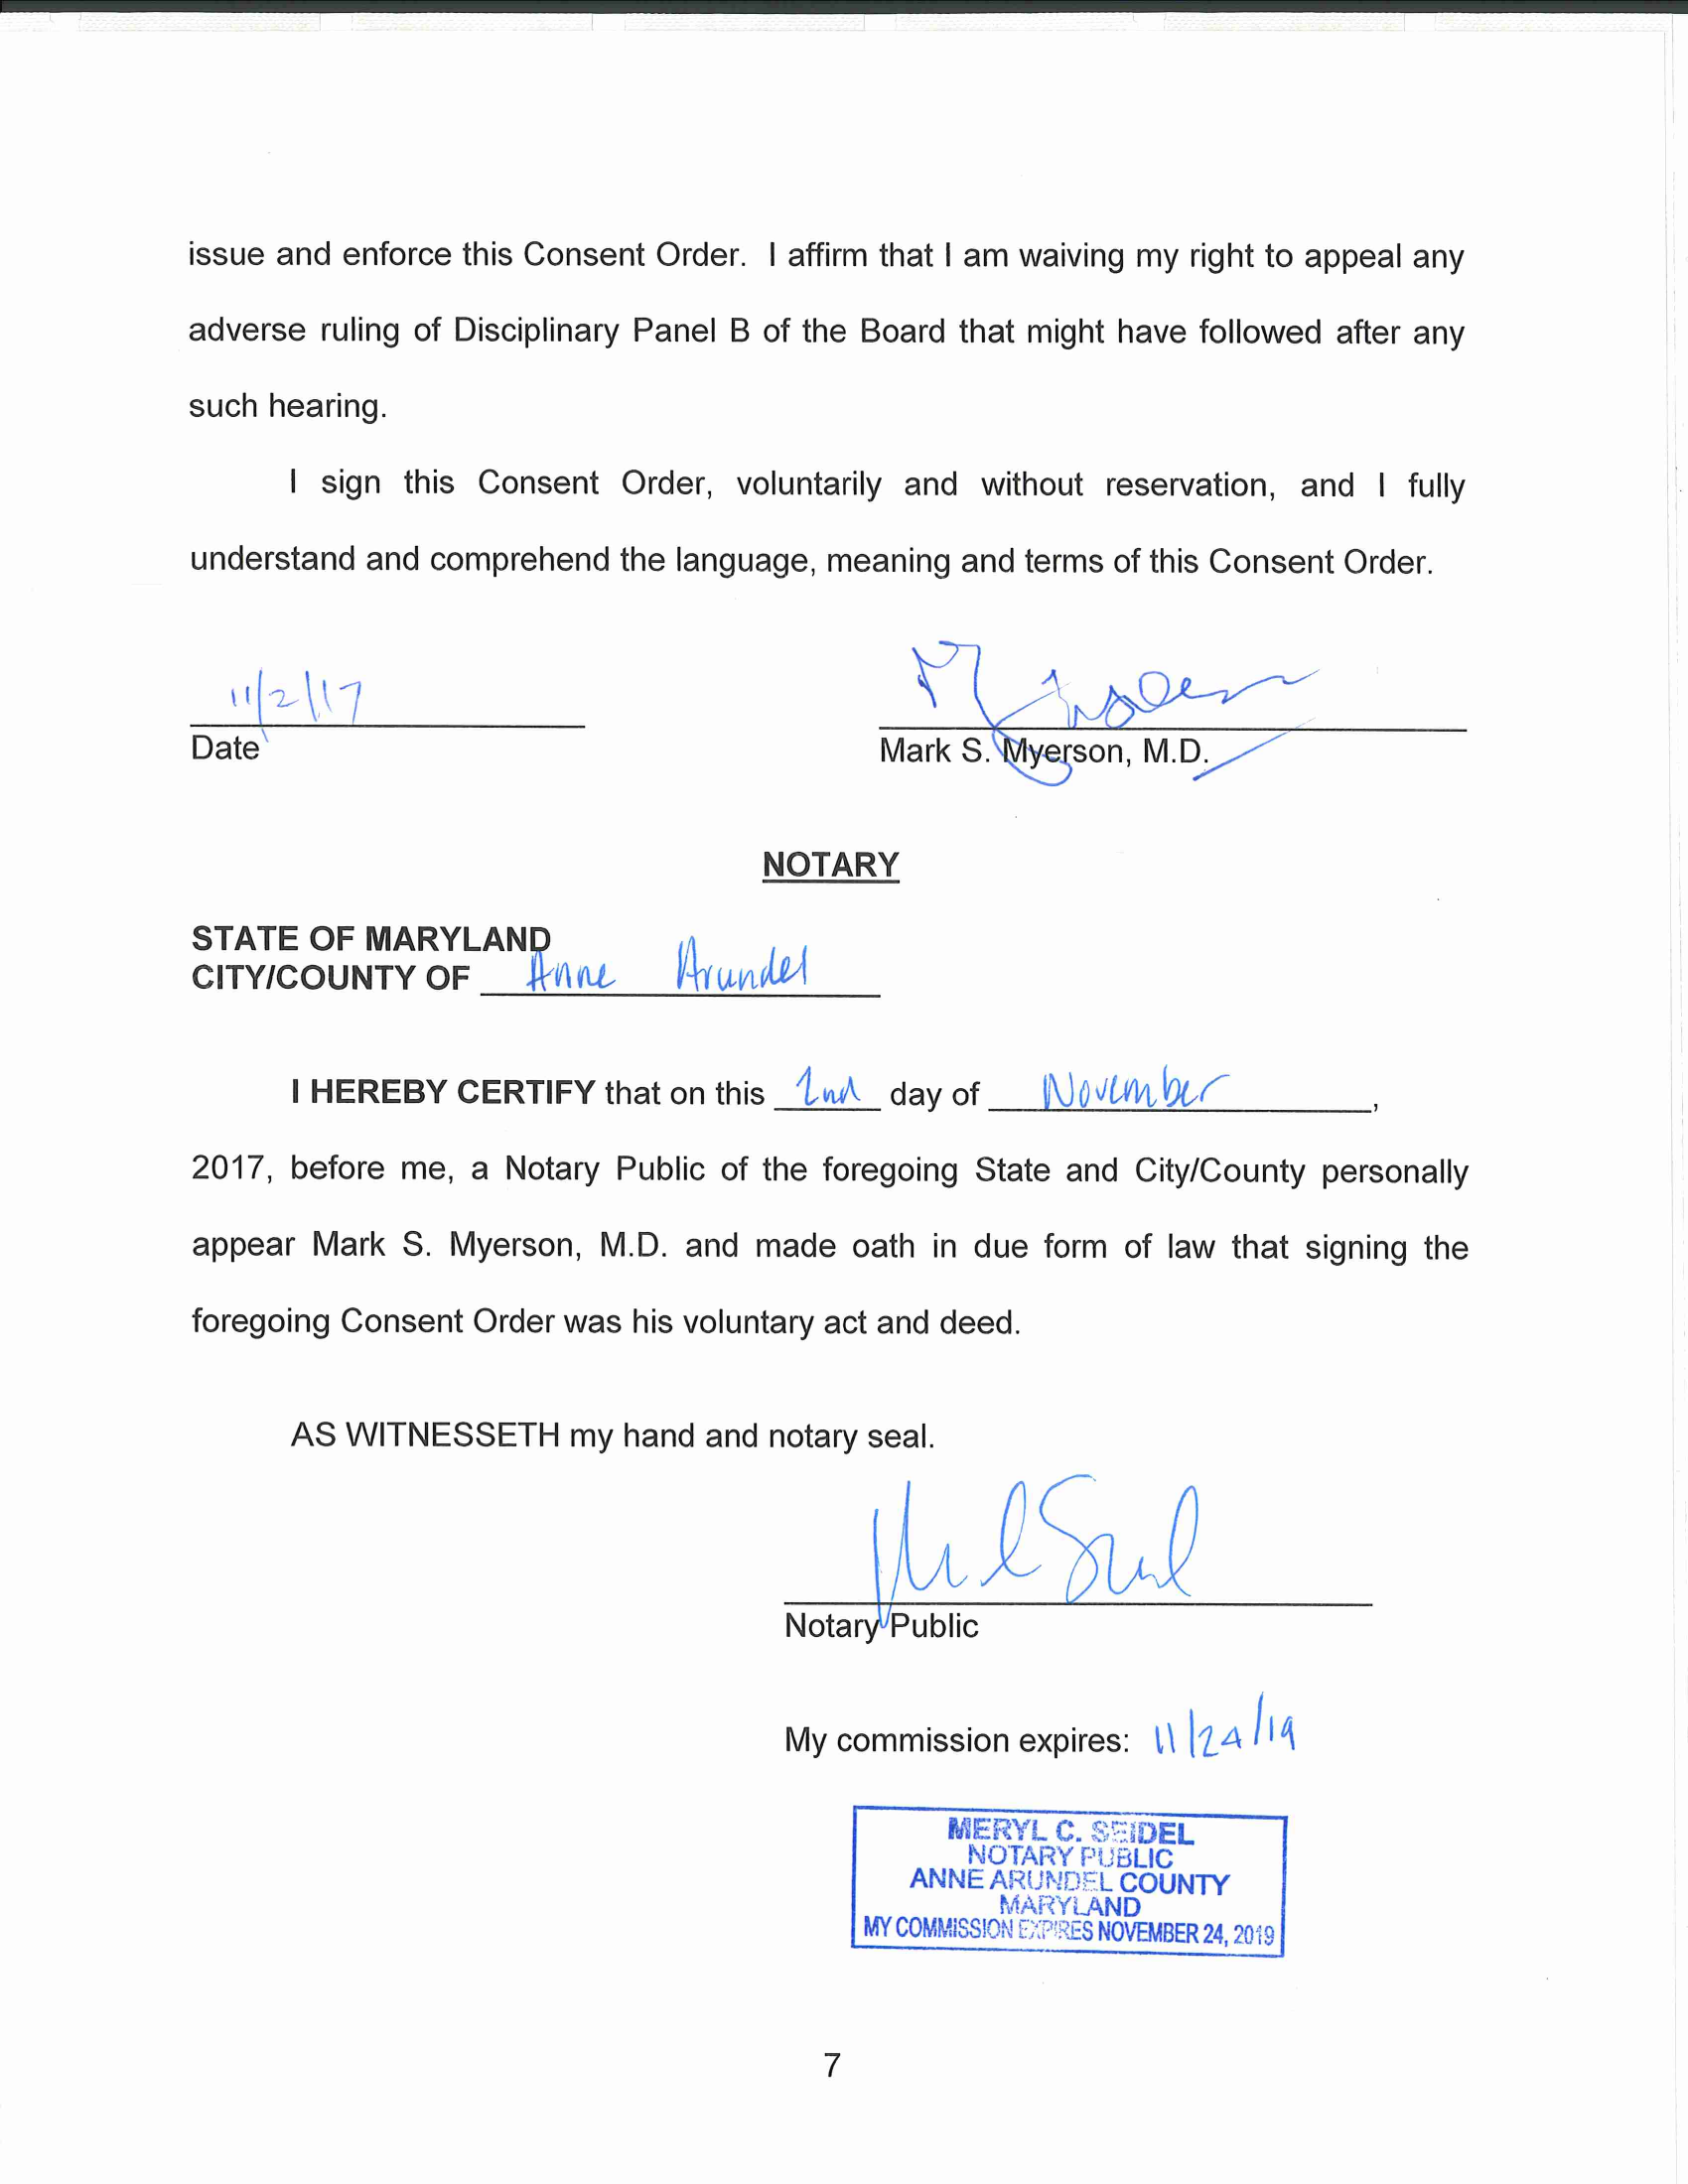 issue and enforce this Consent Order. I affirm that I am waiving my right to appeal any
adverse ruling of Disciplinary Panel B of the Board that might have followed after any
such hearing.
I sign this Consent Order, voluntarily and without reservation, and I fully
understand and comprehend the language, meaning and terms of this Consent Order.
11/2/17
Date
Mark S. Myerson, M.D.
NOTARY
STATE OF MARYLAND
CITY/COUNTY OF Anne Arundel
I HEREBY CERTIFY that on this 2nd day of November,
2017, before me, a Notary Public of the foregoing State and City/County personally
appear Mark S. Myerson, M.D. and made oath in due form of law that signing the
foregoing Consent Order was his voluntary act and deed.
AS WITNESSETH my hand and notary seal.
Notary Public
My commission expires: 11/24/19
MERYL C. SEIDEL
NOTARY PUBLIC
ANNE ARUNDEL COUNTY
MARYLAND
MY COMMISSION EXPIRES NOVEMBER 24, 2019
7